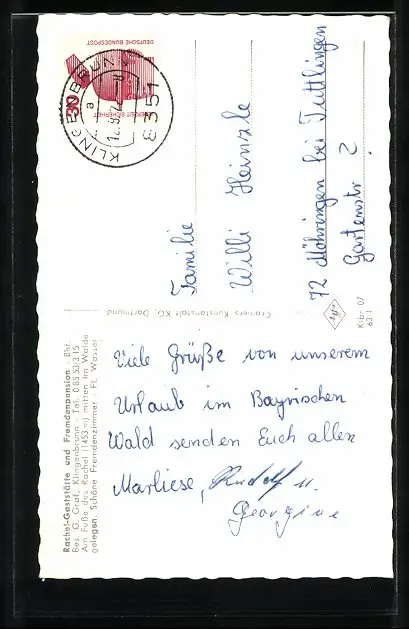 Rachel-Gaststätte und Fremdenpension - Bhf.
Bes. G. Graf, Klingenbrunn - Tel. 0 85 53/3 15
Am Fuße des Rachel (1453 m) mitten im Walde
gelegen. Schöne Fremdenzimmer - Fl. Wasser
Viele Grüße von unserem
Urlaub im Bayrischen
Wald senden Euch allen
Marliese, Rudolf u.
Georgine
Cramers Kunstanstalt KG, Dortmund
Klbr. 07
63.1
DEUTSCHE BUNDESPOST
30
8351
a
Familie
Willi Heinzle
72 Möhringen bei Tuttlingen
Gartenstr 2